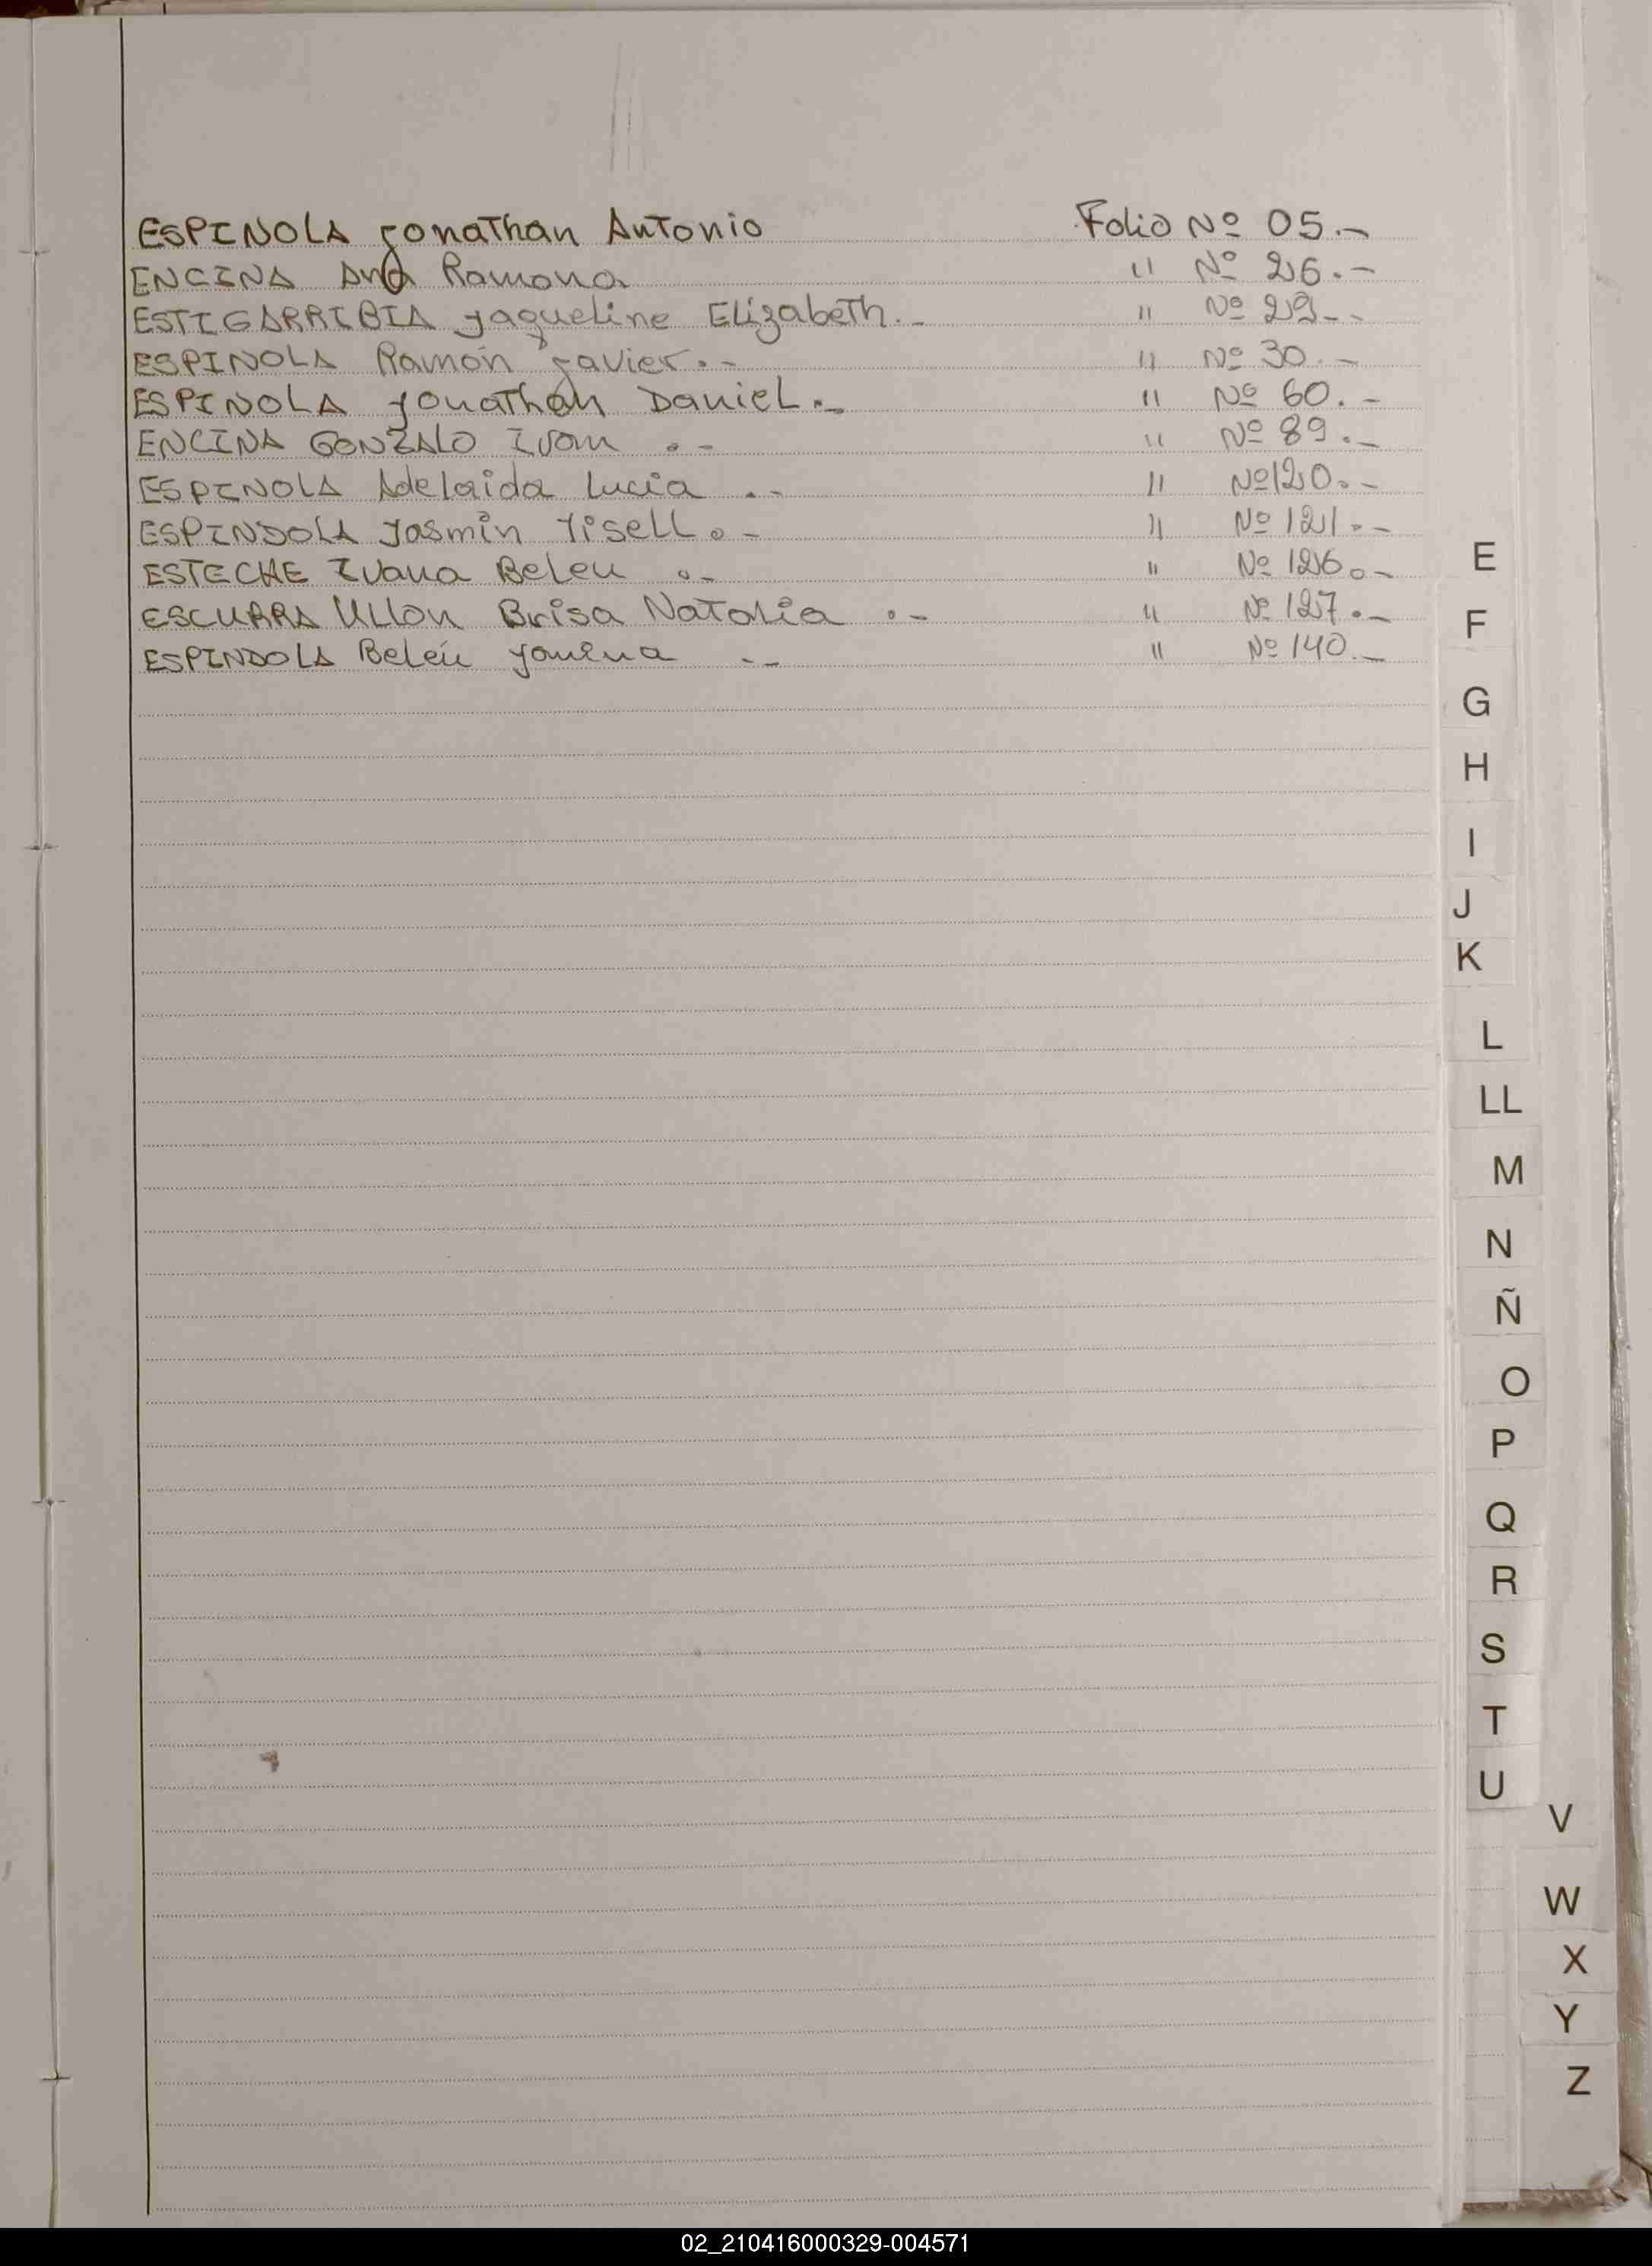 ESPINOLA Jonathan Antonio Folio Nº 05.-
ENCINA Ana Ramona " Nº 26.-
ESTIGARRIBIA Jaqueline Elizabeth.- " Nº 29.-
ESPINOLA Ramón Javier.- " Nº 30.-
ESPINOLA Jonathan Daniel.- " Nº 60.-
ENCINA GONZALO Ivan .- " Nº 89.-
ESPINOLA Adelaida Lucia .- " Nº 120.-
ESPINDOLA Jasmin Yisell.- " Nº 121.-
ESTECHE Ivana Belen .- " Nº 126.-
ESCURRA Ullon Brisa Natalia .- " Nº 127.-
ESPINDOLA Belén .- " Nº 140.-
E
F
G
H
I
J
K
L
LL
M
N
Ñ
O
P
Q
R
S
T
U
V
W
X
Y
Z
02_210416000329-004571